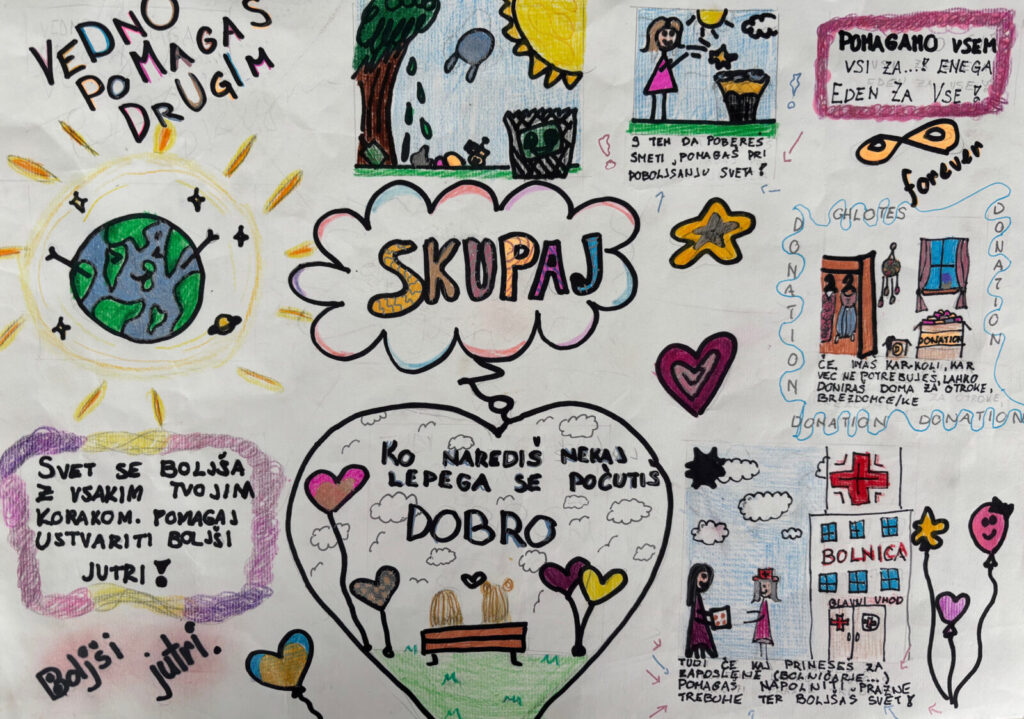 VEDNO
POMAGAŠ
DRUGIM
S TEM DA POBEREŠ
SMETI, POMAGAŠ PRI
POBOLJŠANJU SVETA!
POMAGAMO VSEM
VSI ZA...! ENEGA
EDEN ZA VSE!
forever
SKUPAJ
GHLOTES
DONATION
DONATION
DONATION
ČE IMAŠ KAR-KOLI, KAR
VEČ NE POTREBUJEŠ, LAHKO
DONIRAŠ DOMA ZA OTROKE,
BREZDOMCE/KE
DONATION DONATION
SVET SE BOLJŠA
Z VSAKIM TVOJIM
KORAKOM. POMAGAJ
USTVARITI BOLJŠI
JUTRI!
KO NAREDIŠ NEKAJ
LEPEGA SE POČUTIŠ
DOBRO
BOLNICA
GLAVNI VHOD
Boljši jutri.
TUDI ČE KAJ PRINESEŠ ZA
ZAPOSLENE (BOLNIČARJE...)
POMAGAŠ NAPOLNITI PRAZNE
TREBUHE TER BOLJŠAŠ SVET!